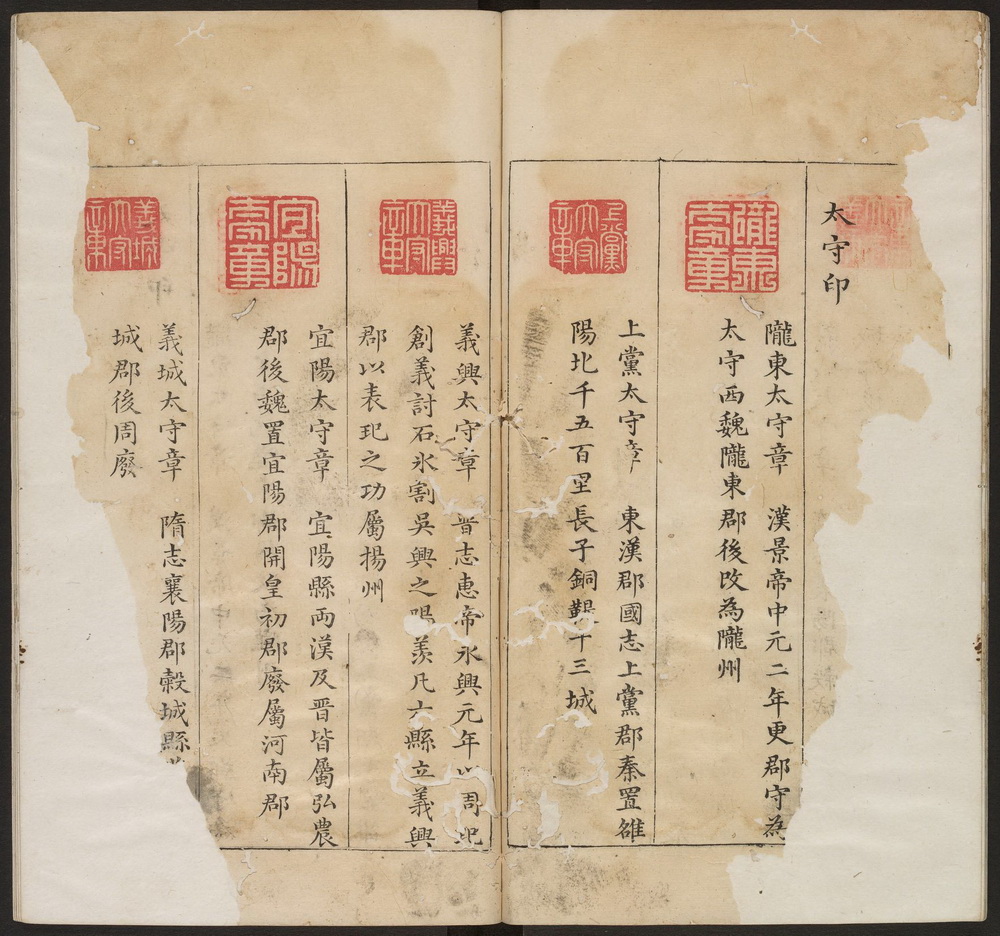 太守印
隴東
太守章
隴東太守章 漢景帝中元二年更郡守為
太守西魏隴東郡後改為隴州
上黨
太守
章
上黨太守章 東漢郡國志上黨郡秦置雒
陽北千五百里長子銅鞮十三城
義興
太守
章
義興太守章 晋志惠帝永興元年以周玘
創義討石氷割吳興之陽羨凡六縣立義興
郡以表玘之功屬揚州
宜陽
太守章
宜陽太守章 宜陽縣両漢及晋皆屬弘農
郡後魏置宜陽郡開皇初郡廢屬河南郡
義城
太守
章
義城太守章 隋志襄陽郡穀城縣
城郡後周廢